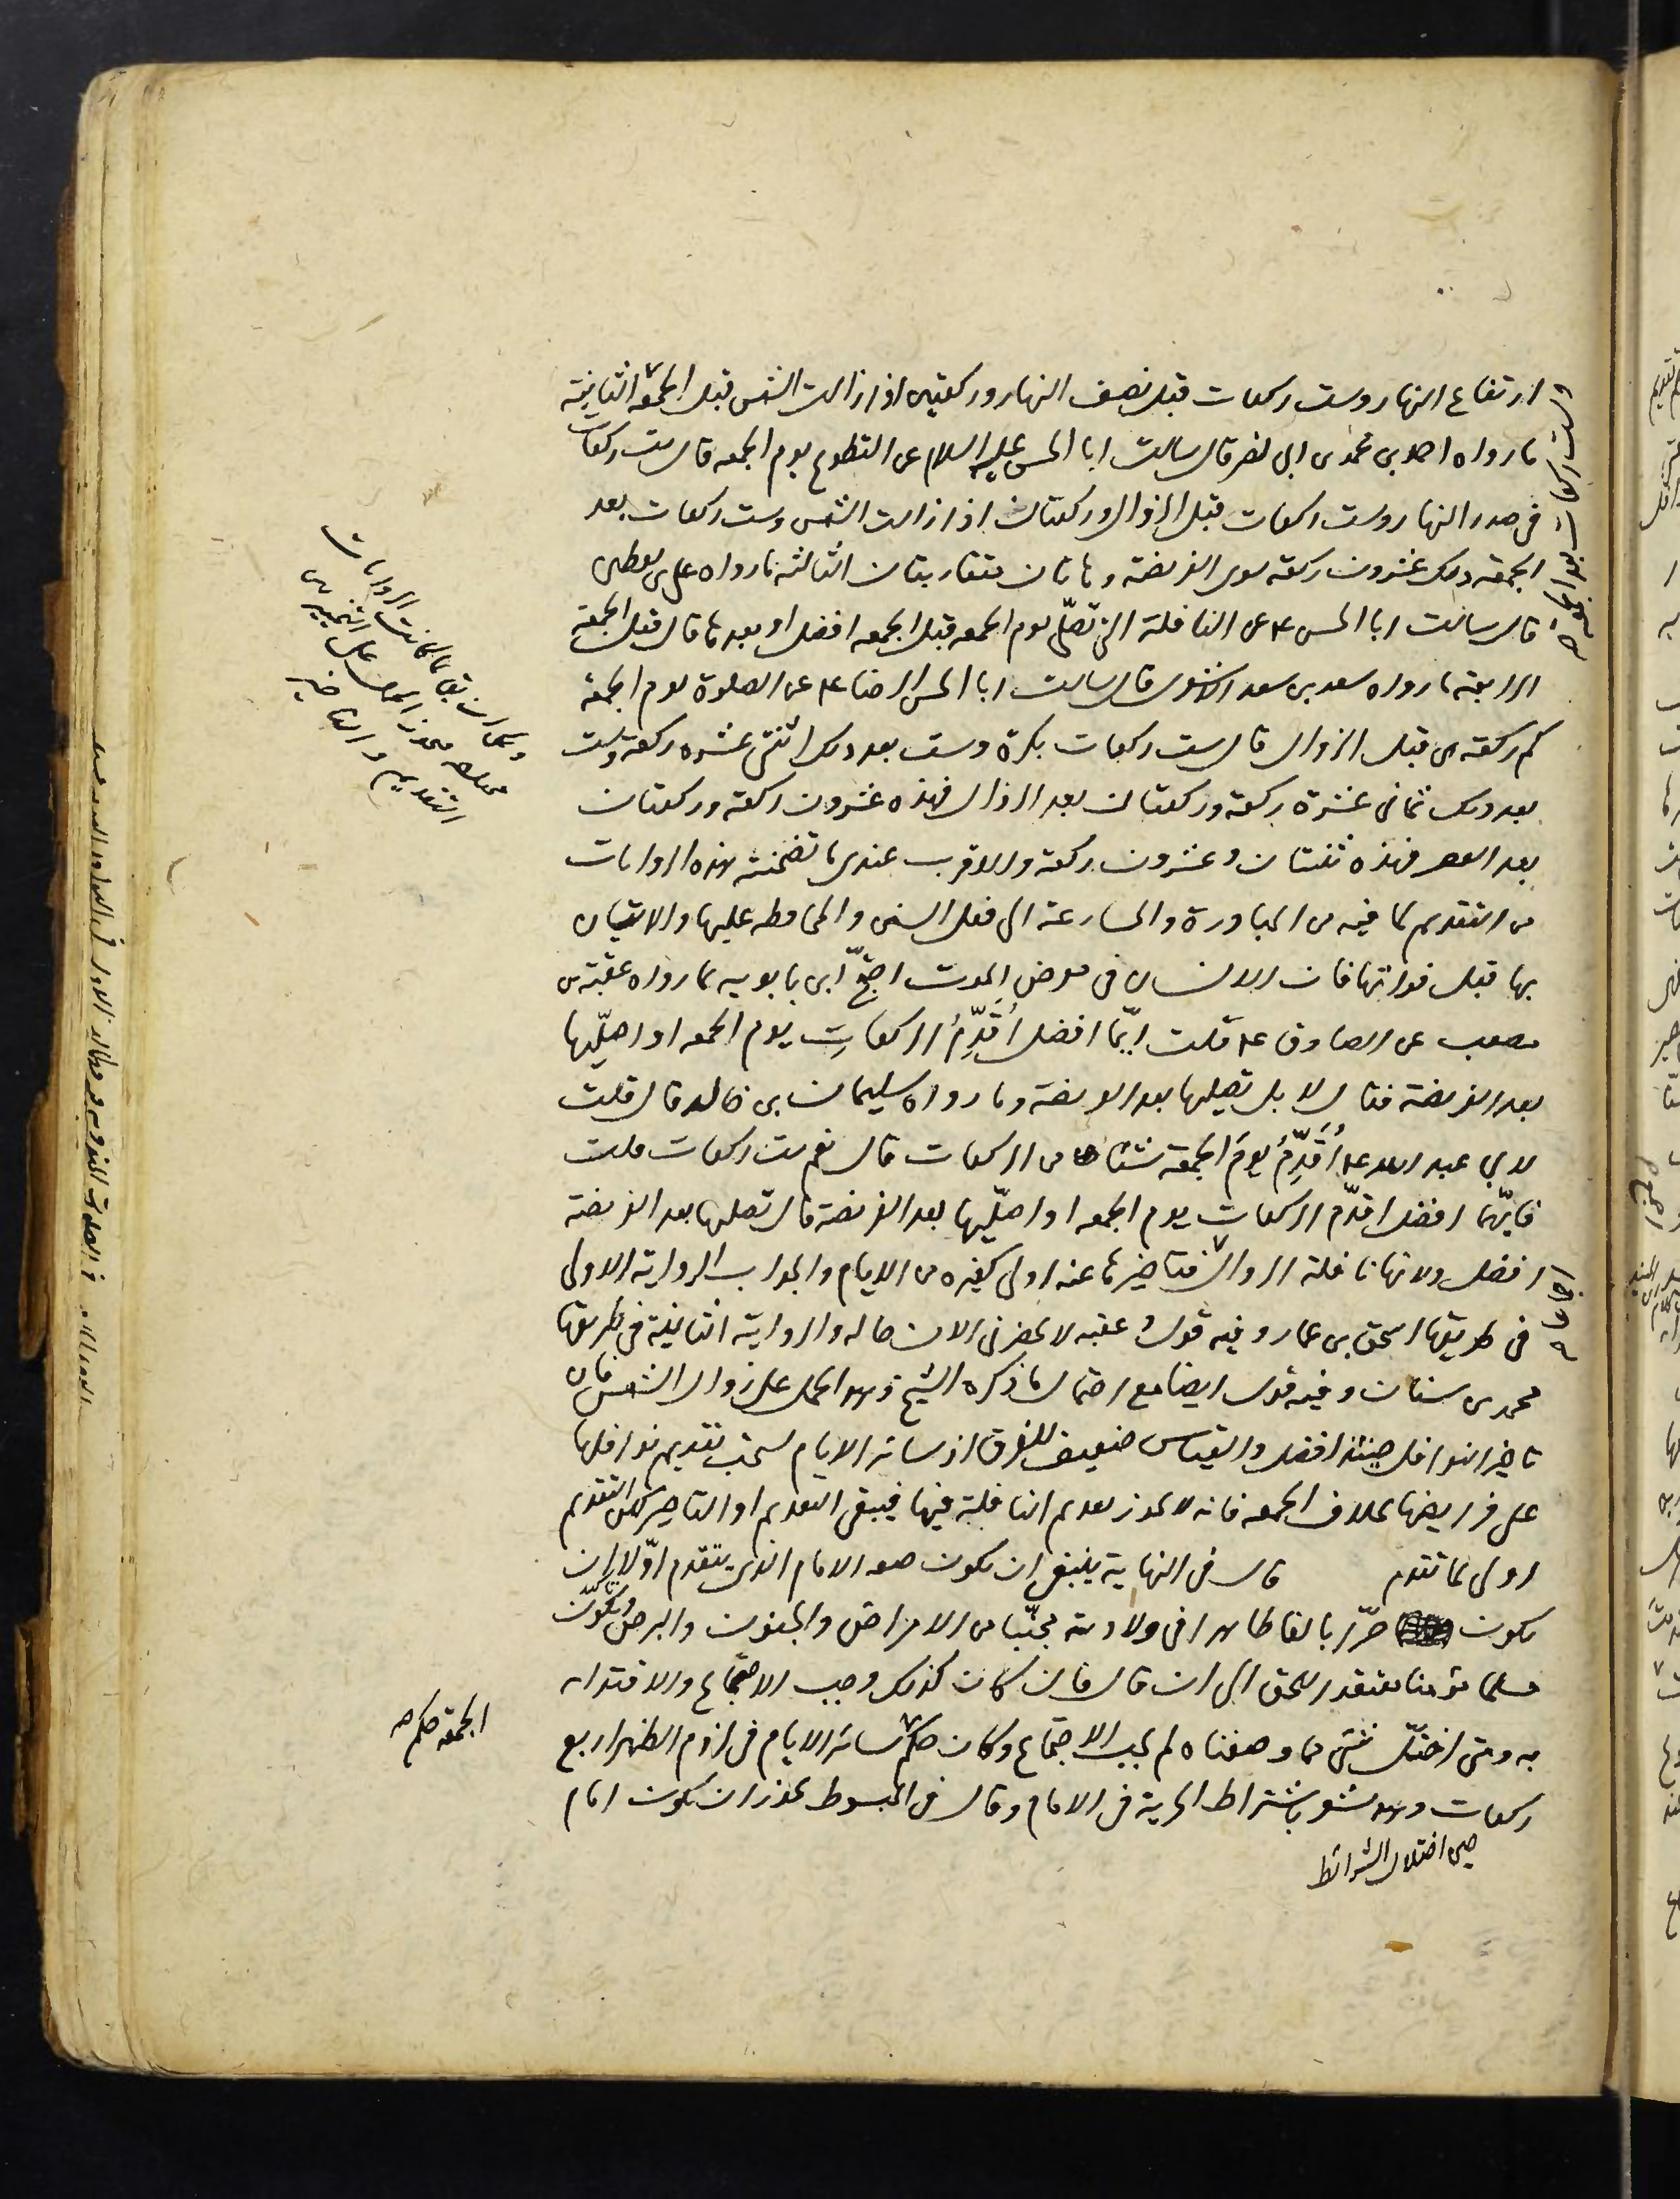 ارتفاع النهار وست ركعات قبل نصف النهار وركعتين اذا زالت الشمس قبل الجمعة الثانية
ما رواه احمد بن محمد بن ابي نصر قال سالت ابا الحسن عليه السلام عن التطوع يوم الجمعه قال ست ركعات
في صدر النهار وست ركعات قبل الزوال وركعتان اذا زالت الشمس وست ركعات بعد
الجمعة فذلك عشرون ركعة سوى الفريضة وهاتان متقاربتان الثالثة ما رواه علي بن يقطين
قال سالت ابا الحسن ع عن النافلة التي تصلّى يوم الجمعه قبل الجمعه افضل او بعدها قال قبل الجمعة
الرابعة ما رواه سعد بن سعد الاشعري قال سالت ابا الحسن الرضا ع عن الصلوة يوم الجمعة
كم ركعة هي قبل الزوال قال ست ركعات بكرة وست بعد ذلك اثنتى عشره ركعة وست
بعد ذلك ثماني عشرة ركعة وركعتان بعد الزوال فهذه عشرون ركعة وركعتان
بعد العصر فهذه ثنتان وعشرون ركعة والاقرب عندي ما تضمنته هذه الروايات
من التقديم لما فيه من المبادرة والمسارعة الى فعل السنن والمحافظه عليها والاتيان
بها قبل فواتها فان الانسان في معرض الموت احتجّ ابن بابويه بما رواه عقبة بن
مصعب عن الصادق ع قلت ايّما افضل اُقَدِّمُ الركعاتِ يوم الجمعه او اصلّيها
بعد الفريضة فقال لا بل تصليها بعد الفريضة وما رواه سليمان بن خالد قال قلت
لابي عبد الله ع اُقَدِّمُ يومَ الجمعة شيئا من الركعات قال نعم ست ركعات قلت
فايّهما افضل اقدّم الركعات يوم الجمعه او اصلّيها بعد الفريضة قال تصليها بعد الفريضة
افضل ولانها نافلة الزوال فتاخيرها عنه اولى كغيره من الايام والجواب الرواية الاولى
في طريقها اسحق بن عمار وفيه قول وعقبه لا يحضرني الان حاله والرواية الثانية في طريقها
محمد بن سنان وفيه قول ايضا مع احتمال ما ذكره الشيخ وهو الحمل على زوال الشمس فان
تاخير النوافل حينئذ افضل والقياس ضعيف للفرق اذ سائر الايام يستحب تقديم نوافلها
على فرايضها بخلاف الجمعه فانه لا يجوز تقديم النافلة فيها فيبقى التقديم او التاخير لكن التقديم
اولى لما تقدم قال في النهاية ينبغي ان يكون هو الامام الذي يتقدم اوّلا ان
يكون حرّا بالغا طاهرا في ولادته مجنّبا من الامراض والجنون والبرص ويكون
مسلما مؤمنا معتقدا للحق الى ان قال فان كان كذلك وجب الاجتماع والاقتداء
به ومتى اختلّ شئ مما وصفناه لم يجب الاجتماع وكان حكم سائر الايام في لزوم الظهر اربع
ركعات وهو يشعر باشتراط الحرية في الامام وقال في المبسوط يجوز ان يكون امام
حين اختلال الشرائط
وست ركعات بعد الجمعة
الجمعة حكم صح